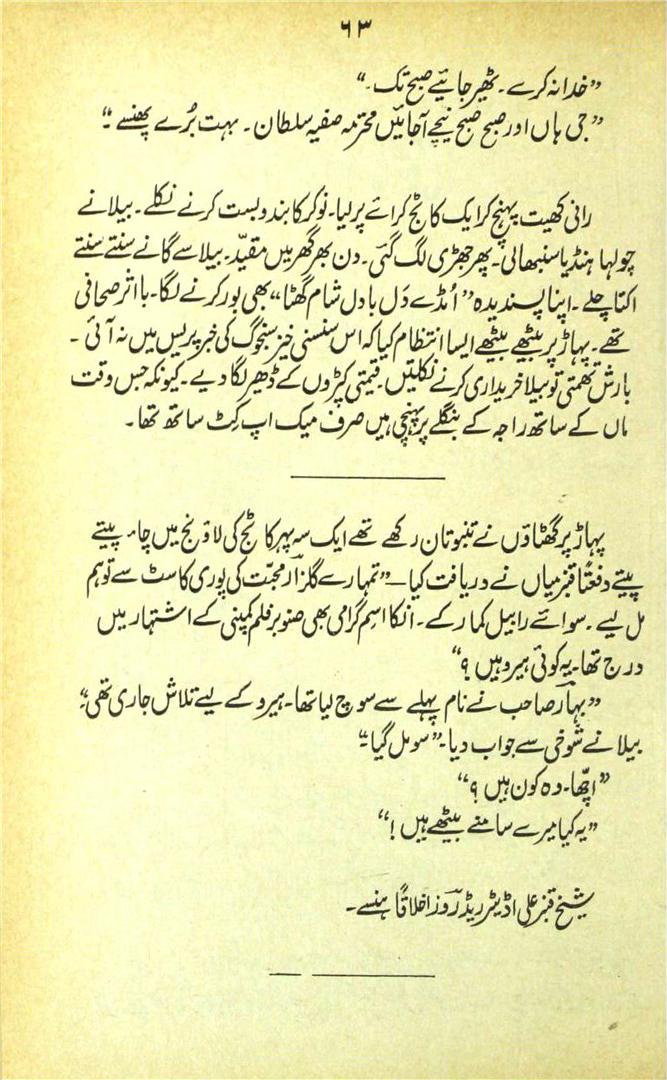 ۶۳
”خدا نہ کرے۔ ٹھیر جائیے صبح تک۔“
”جی ہاں اور صبح صبح نیچے آجائیں محترمہ صفیہ سلطان۔ بہت بُرے پھنسے۔“
رانی کھیت پہنچ کر ایک کاٹج کرائے پر لیا۔ نوکر کا بندوبست کرنے نکلے۔ بیلا نے
چولہا ہنڈیا سنبھالی۔ پھر جھڑی لگ گئی۔ دن بھر گھر میں مقیّد۔ بیلا سے گانے سنتے سنتے
اکتا چلے۔ اپنا پسندیدہ ”اُمڈے دَل بادل شام گھٹا“ بھی بور کرنے لگا۔ بااثر صحافی
تھے۔ پہاڑ پر بیٹھے بیٹھے ایسا انتظام کیا کہ اس سنسنی خیز سنجوگ کی خبر پریس میں نہ آئی۔
بارش تھمتی تو بیلا خریداری کرنے نکلتیں۔ قیمتی کپڑوں کے ڈھیر لگا دیے۔ کیونکہ جس وقت
ماں کے ساتھ راجہ کے بنگلے پر پہنچی ہیں صرف میک اپ کِٹ ساتھ تھا۔
پہاڑ پر گھٹاؤں نے تنبو تان رکھے تھے ایک سہ پہر کاٹج کی لاؤنج میں چاء پیتے
پیتے دفعتًا قنبر میاں نے دریافت کیا — ”تمہارے گلزارِ محبّت کی پوری کاسٹ سے تو ہم
مل لیے۔ سوائے رابیل کمار کے۔ انکا اسِم گرامی بھی صنوبر فلم کمپنی کے اشتہار میں
درج تھا۔ یہ کوئی ہیرو ہیں؟“
”بہار صاحب نے نام پہلے سے سوچ لیا تھا۔ ہیرو کے لیے تلاش جاری تھی۔“
بیلا نے شوخی سے جواب دیا۔ ”سو مل گیا۔“
”اچّھا۔ وہ کون ہیں؟“
”یہ کیا میرے سامنے بیٹھے ہیں!“
شیخ قنبر علی اڈیٹر ریڈ روز اخلاقًا ہنسے۔